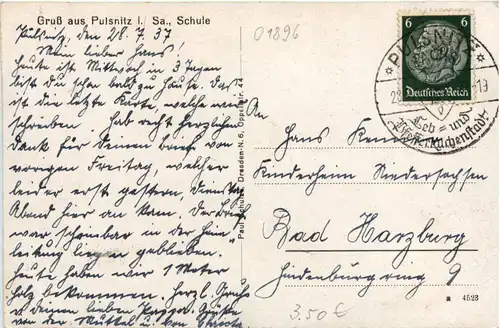 Gruß aus Pulsnitz i. Sa., Schule
Pulsnitz, den 28.7.37
Mein lieber Hans!
Heute ist Mittwoch in 3 Tagen
bist du schon bald zu Hause, das
ist die letzte Karte, welche wir
schreiben. Hab recht herzlichen
Dank für deinen Brief vom
vorigen Freitag, welcher
leider erst gestern, Dienstag
Abend hier an kam. Der Brief
war scheinbar in der Heim
leitung liegen geblieben.
Heute haben wir 1 Meter
Holz bekommen. Herzl. Grüße
von deinem lieben
von der Muttel u. von
01896
Paul Schulze, Dresden-N. 6, Oppellstr. 44
6 6
Deutsches Reich
PULSNITZ
An
Hans
Kinderheim Niedersachsen
Bad Harzburg
Hindenburgring 9
4528
3.50 €